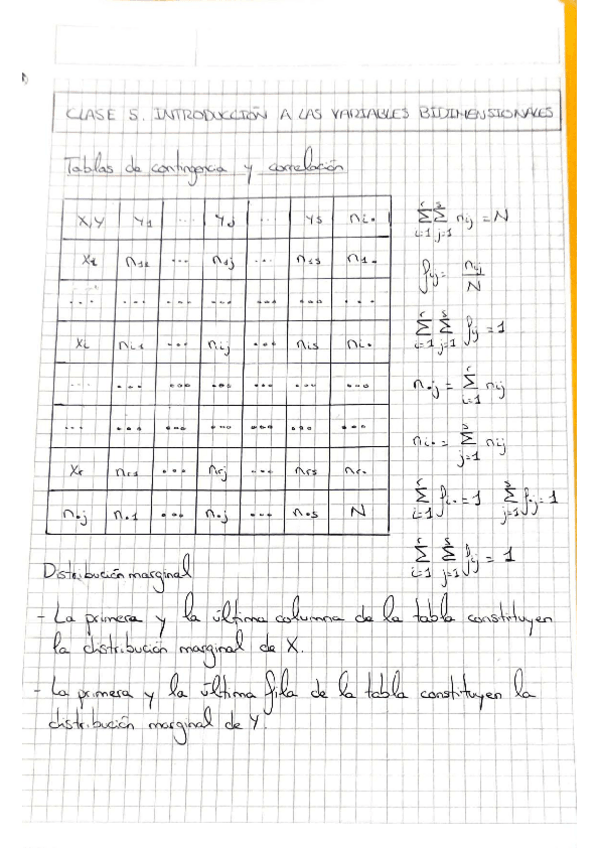 CLASE 5. INTRODUCCIÓN A LAS VARIABLES BIDIMENSIONALES
Tablas de contingencia y correlación
X,Y Y₁ ... Yⱼ ... Ys nᵢ.
X₁ n₁₁ ... n₁ⱼ ... n₁s n₁.
... ... ... ... ... ... ...
Xᵢ nᵢ₁ ... nᵢⱼ ... nᵢs nᵢ.
... ... ... ... ... ... ...
... ... ... ... ... ... ...
Xr nr₁ ... nrⱼ ... nrs nr.
n.ⱼ n.₁ ... n.ⱼ ... n.s N
∑ᵢ₌₁ʳ ∑ⱼ₌₁ˢ nᵢⱼ = N
fᵢⱼ = nᵢⱼ / N
∑ᵢ₌₁ʳ ∑ⱼ₌₁ˢ fᵢⱼ = 1
n.ⱼ = ∑ᵢ₌₁ʳ nᵢⱼ
nᵢ. = ∑ⱼ₌₁ˢ nᵢⱼ
∑ᵢ₌₁ʳ fᵢ. = 1 ∑ⱼ₌₁ˢ f.ⱼ = 1
∑ᵢ₌₁ʳ ∑ⱼ₌₁ˢ fᵢⱼ = 1
Distribución marginal
- La primera y la última columna de la tabla constituyen
la distribución marginal de X.
- La primera y la última fila de la tabla constituyen la
distribución marginal de Y.